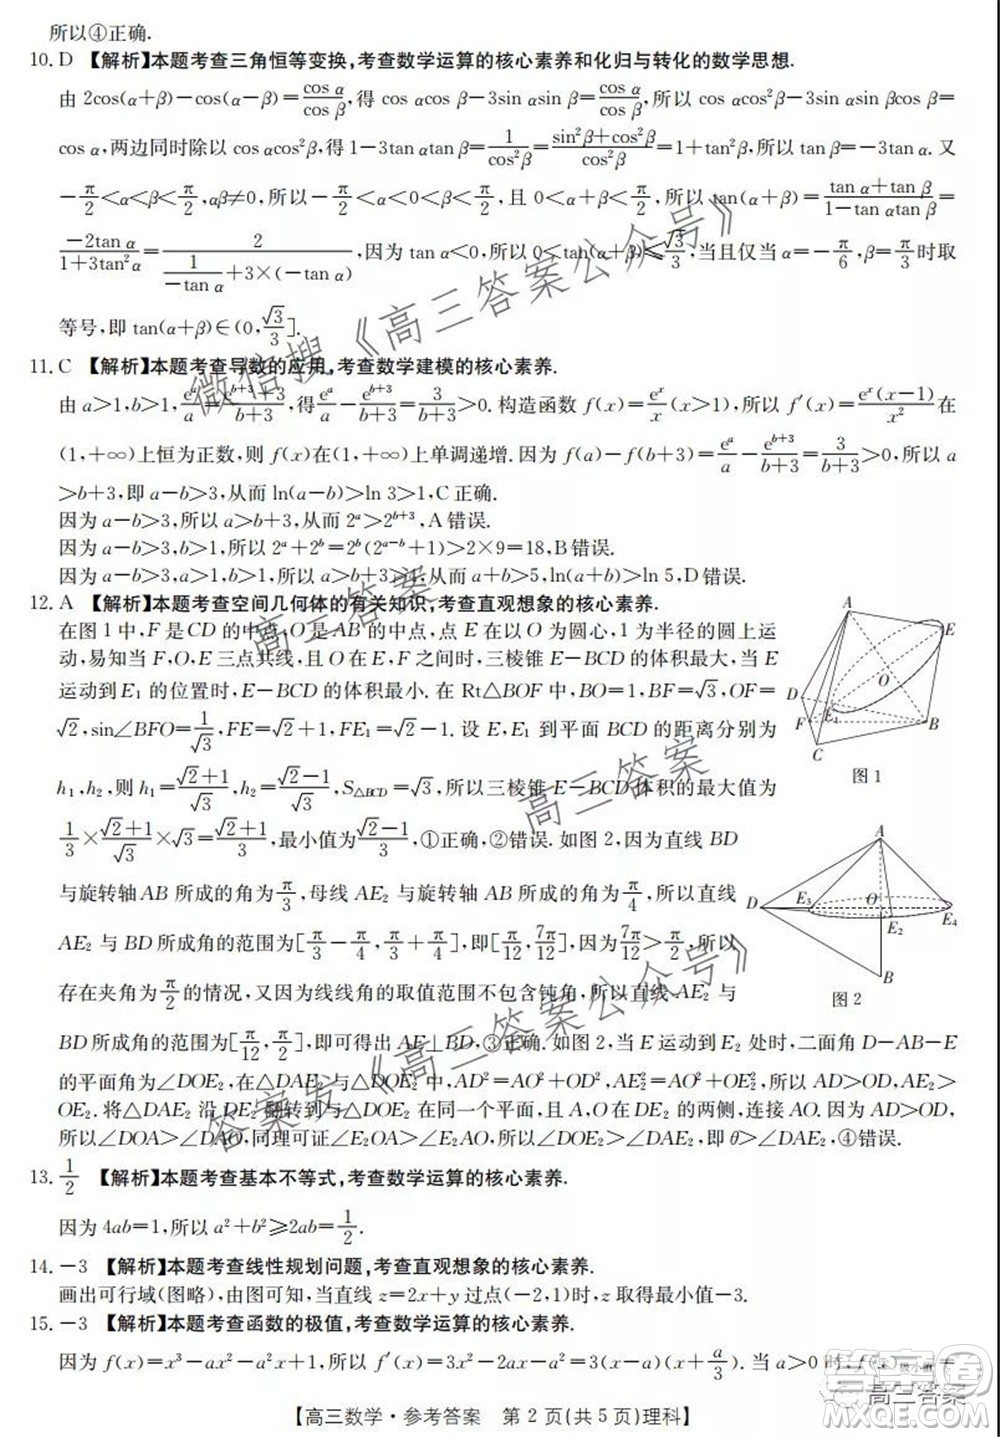 所以④正确.
10. D 【解析】本题考查三角恒等变换,考查数学运算的核心素养和化归与转化的数学思想.
由 2cos(α+β)-cos(α-β)=cos α/cos β,得 cos αcos β-3sin αsin β=cos α/cos β,所以 cos αcos²β-3sin αsin βcos β=
cos α,两边同时除以 cos αcos²β,得 1-3tan αtan β=1/cos²β=(sin²β+cos²β)/cos²β=1+tan²β,所以 tan β=-3tan α. 又
-π/2<α<β<π/2,αβ≠0,所以-π/2<α<0<β<π/2,且 0<α+β<π/2,所以 tan(α+β)=(tan α+tan β)/(1-tan αtan β)=
-2tan α/(1+3tan²α)=2/(1/(-tan α)+3×(-tan α)),因为 tan α<0,所以 0<tan(α+β)≤√3/3,当且仅当 α=-π/6,β=π/3时取
等号,即 tan(α+β)∈(0,√3/3].
11. C 【解析】本题考查导数的应用,考查数学建模的核心素养.
由 a>1,b>1,eᵃ/a=(eᵇ⁺³+3)/(b+3),得eᵃ/a-eᵇ⁺³/(b+3)=3/(b+3)>0. 构造函数 f(x)=eˣ/x(x>1),所以 f′(x)=eˣ(x-1)/x²在
(1,+∞)上恒为正数,则 f(x)在(1,+∞)上单调递增. 因为 f(a)-f(b+3)=eᵃ/a-eᵇ⁺³/(b+3)=3/(b+3)>0,所以 a
>b+3,即 a-b>3,从而 ln(a-b)>ln 3>1,C 正确.
因为 a-b>3,所以 a>b+3,从而 2ᵃ>2ᵇ⁺³,A 错误.
因为 a-b>3,b>1,所以 2ᵃ+2ᵇ=2ᵇ(2ᵃ⁻ᵇ+1)>2×9=18,B 错误.
因为 a-b>3,b>1,所以 a>b+3>4,从而 a+b>5,所以 ln(a+b)>ln 5,D 错误.
12. A 【解析】本题考查空间几何体的有关知识,考查直观想象的核心素养.
在图 1 中,F 是 CD 的中点,O 是 AB 的中点,点 E 在以 O 为圆心,1 为半径的圆上运
动,易知当 F,O,E 三点共线,且 O 在 E,F 之间时,三棱锥 E-BCD 的体积最大,当 E
运动到 E₁ 的位置时,E-BCD 的体积最小. 在 Rt△BOF 中,BO=1,BF=√3,OF=
√2,sin∠BFO=1/√3,FE=√2+1,FE₁=√2-1. 设 E,E₁ 到平面 BCD 的距离分别为
h₁,h₂,则 h₁=(√2+1)/√3,h₂=(√2-1)/√3,S△BCD=√3,所以三棱锥 E-BCD 体积的最大值为
1/3×(√2+1)/√3×√3=(√2+1)/3,最小值为(√2-1)/3,①正确,②错误. 如图 2,因为直线 BD
与旋转轴 AB 所成的角为π/3,母线 AE₂ 与旋转轴 AB 所成的角为π/4,所以直线
AE₂ 与 BD 所成角的范围为[π/3-π/4,π/3+π/4],即[π/12,7π/12],因为7π/12>π/2,所以
存在夹角为π/2的情况,又因为线线角的取值范围不包含钝角,所以直线 AE₂ 与
BD 所成角的范围为[π/12,π/2],即可得出 AE⊥BD,③正确. 如图 2,当 E 运动到 E₂ 处时,二面角 D-AB-E
的平面角为∠DOE₂,在△DAE₂ 与△DOE₂ 中,AD²=AO²+DO²,AE₂²=AO²+OE₂²,所以 AD>DO,AE₂>
OE₂. 将△DAE₂ 沿 DE₂ 翻转到与△DOE₂ 在同一个平面,且 A,O 在 DE₂ 的两侧,连接 AO. 因为 AD>DO,
所以∠DOA>∠DAO,同理可证∠AOE₂>∠OAE₂,所以∠DOE₂>∠DAE₂,即 θ>∠DAE₂,④错误.
13. 1/2 【解析】本题考查基本不等式,考查数学运算的核心素养.
因为 4ab=1,所以 a²+b²≥2ab=1/2.
14. -3 【解析】本题考查线性规划问题,考查直观想象的核心素养.
画出可行域(图略),由图可知,当直线 z=2x+y 过点(-2,1)时,z 取得最小值-3.
15. -3 【解析】本题考查函数的极值,考查数学运算的核心素养.
因为 f(x)=x³-ax²-a²x+1,所以 f′(x)=3x²-2ax-a²=3(x-a)(x+a/3). 当 a>0 时,f(x)极小值=
【高三数学·参考答案 第 2 页(共 5 页)理科】
A
E
D
O
F
E₁
B
C
图 1
A
D
E₃
O
E₂
E₄
B
图 2
微信搜《高三答案公众号》
高三答案
高三答案
答案发《高三答案公众号》
高三答案
答案圈
MXQE.COM